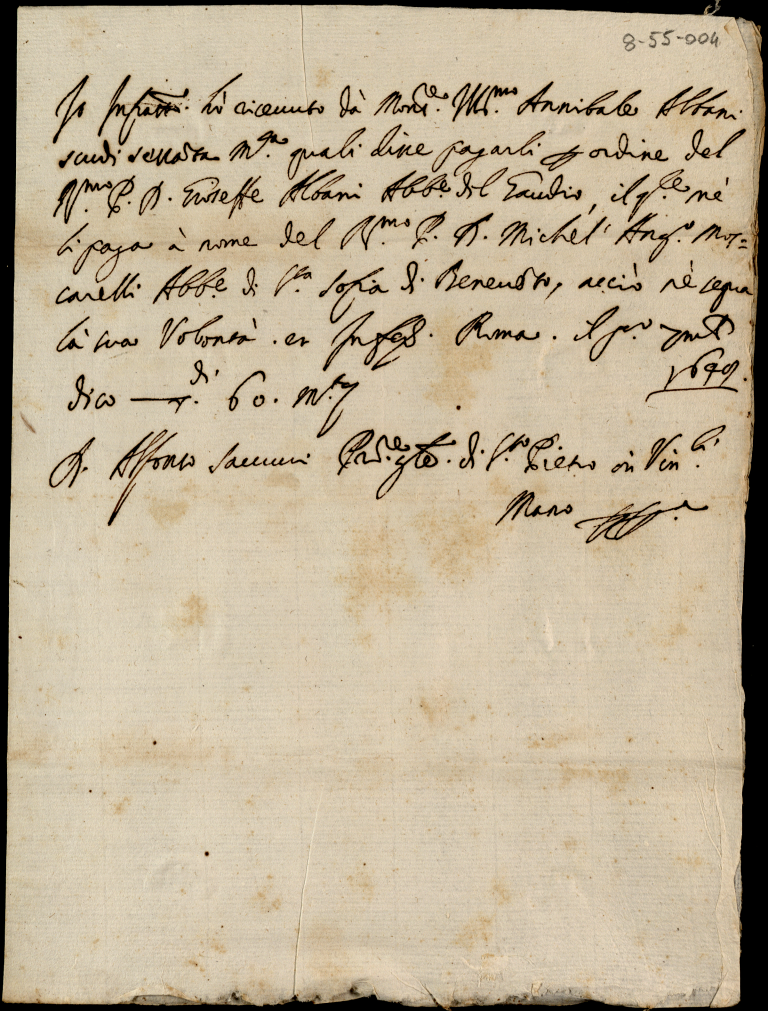 8-55-004
Io Infratto. hò riceuuto dà Monsre. Illmo. Annibale Albani
scudi sessanta mta. quali disse pagarli ordine del
Rmo. P. D. Gioseffe Albani Abbe. del Gaudio, il qle. nè
li paga à nome del Rmo. P. D. Michel' Ango. Mos=
carelli Abbe. di Sta. Sofia di Beneuoto, acciò nè segua
la sua Volontà. Roma. il po.
1699.
dico di. 60. mta
D. Alfonso di Sto. Pietro in Vinli.
Mano